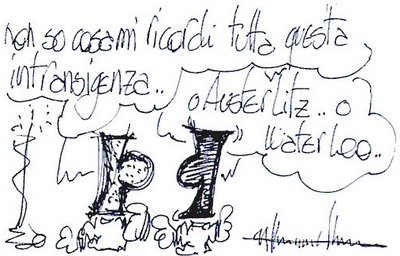 non so cosa mi ricordi tutta questa
intransigenza..
o Austerlitz.. o
Waterloo..